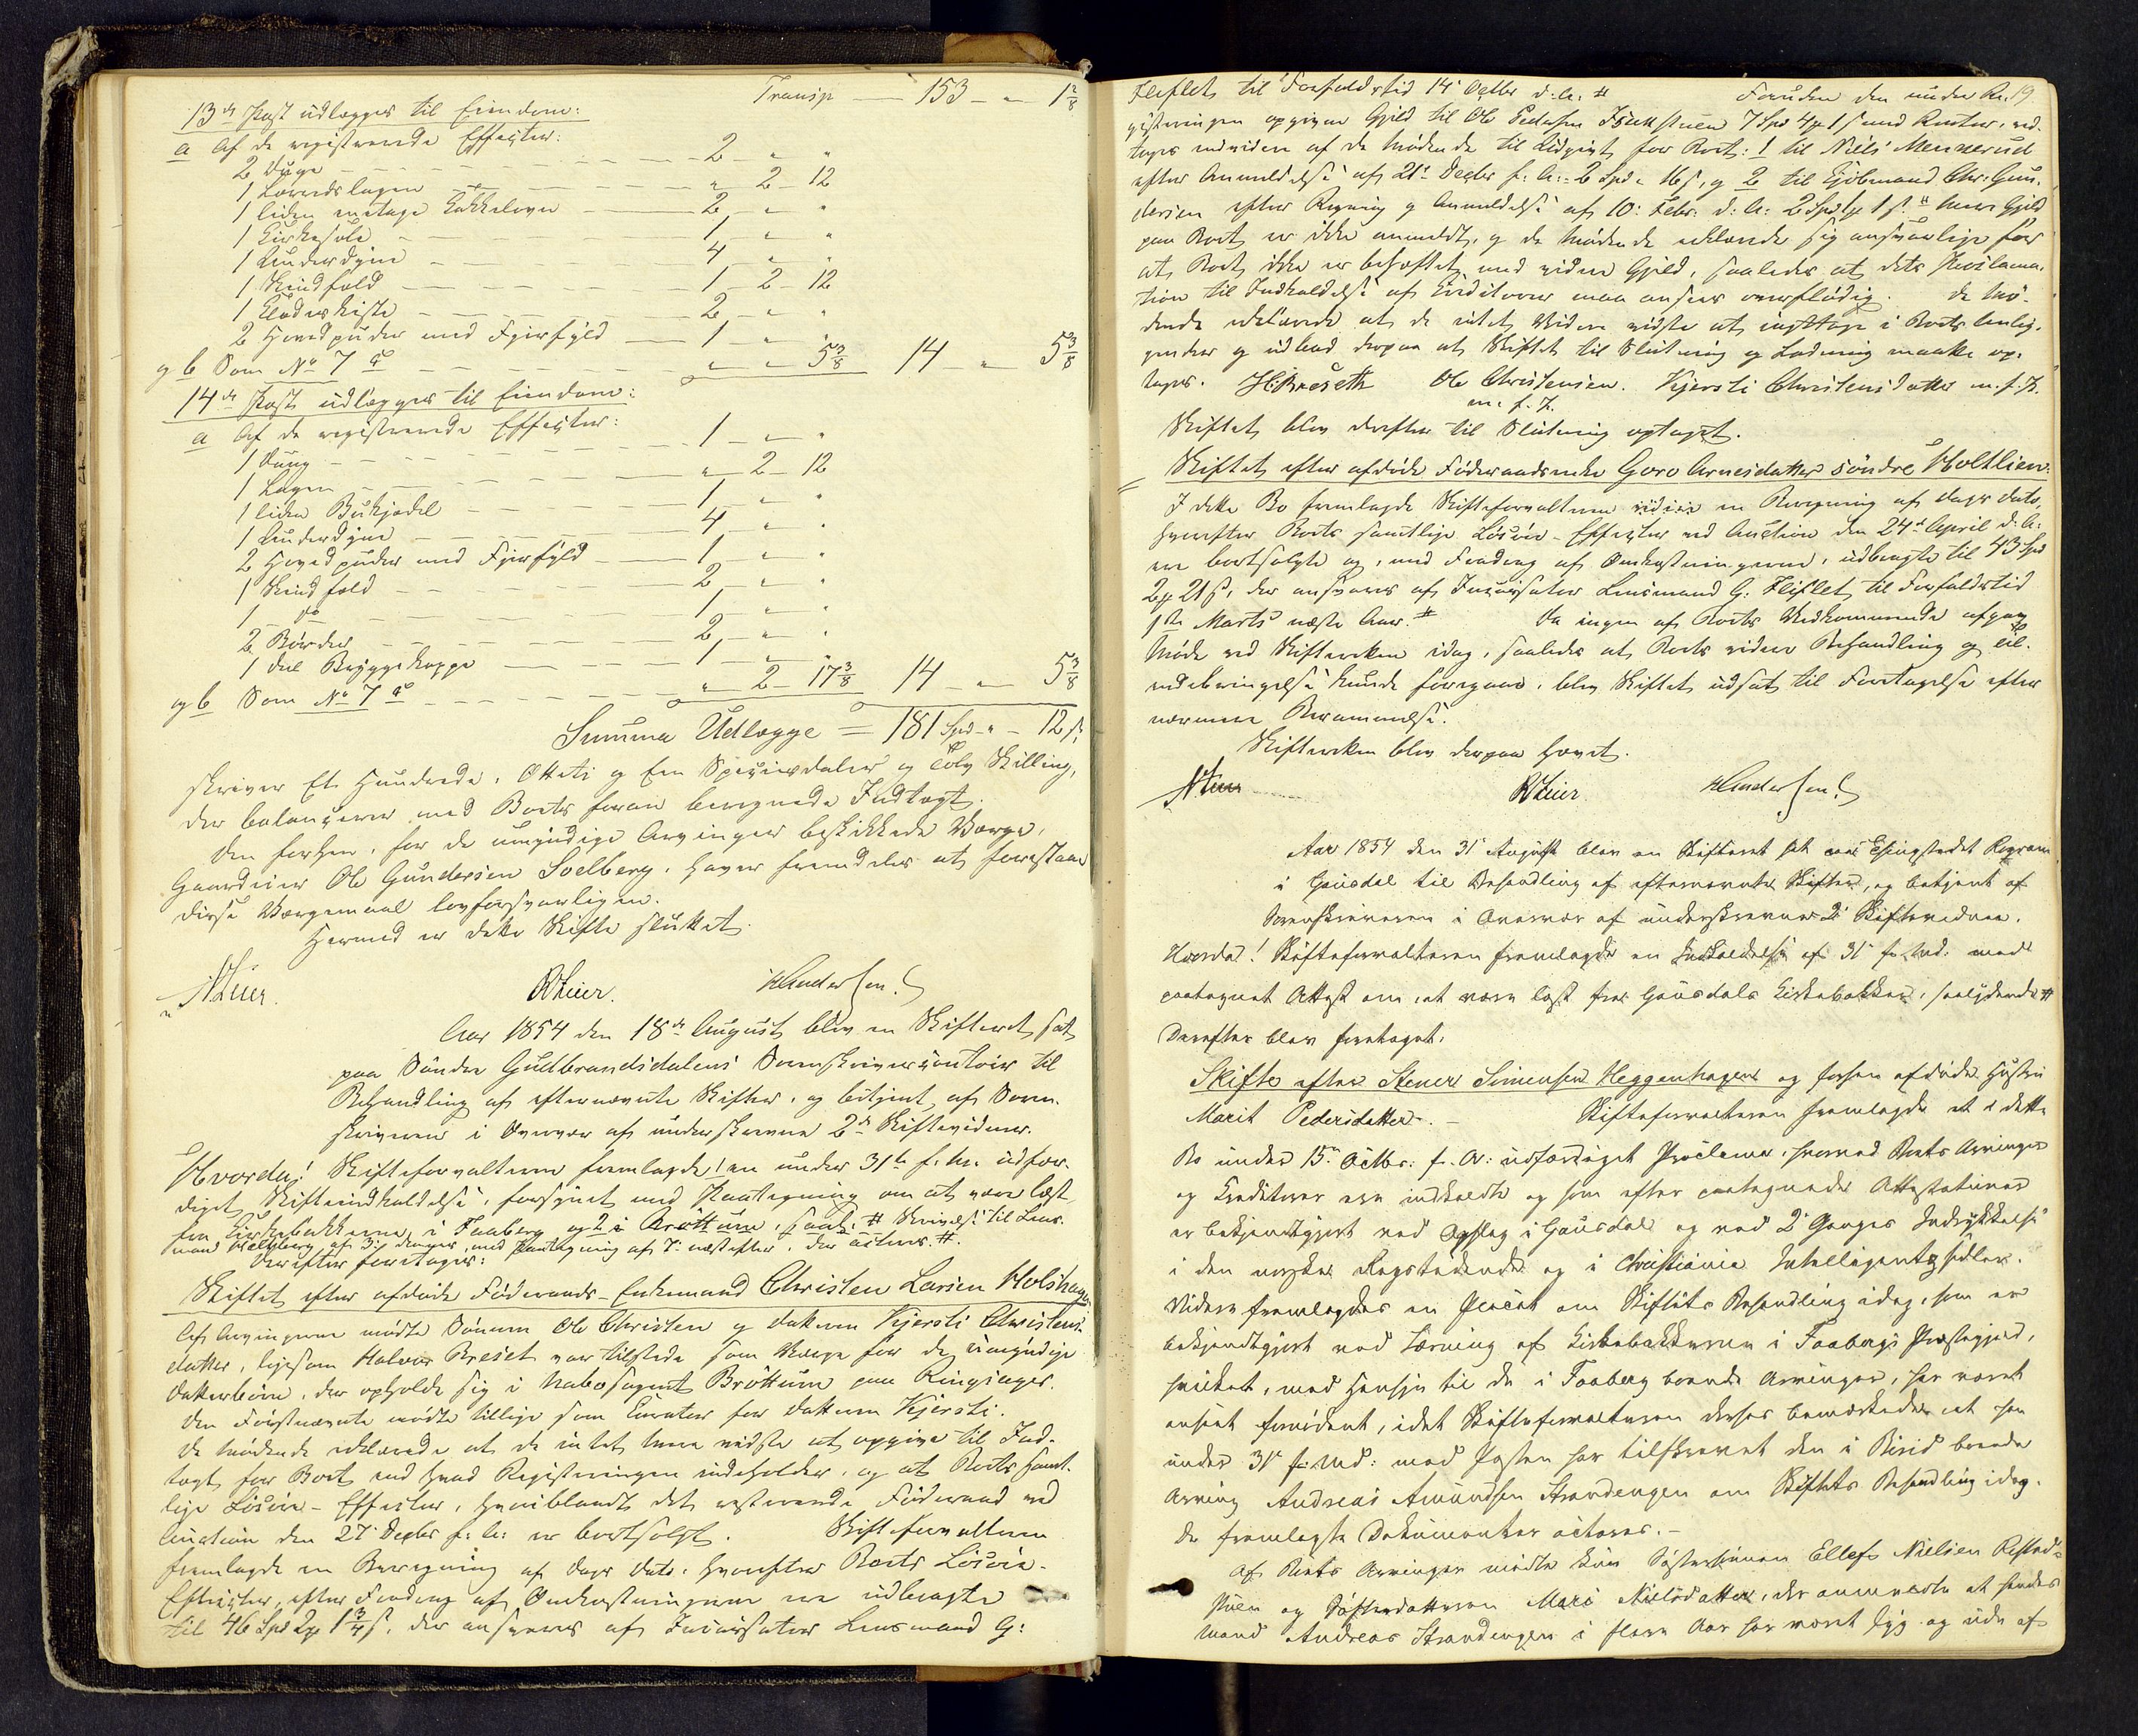 Transp — 153 - " 1 2/8
13de Post udlægges til Eiendom:
a Af de registrerede Effecter:
2 Duge — 2 " "
1 Lærredslagen — " 2 - 12
1 liden enetages Kakkelovn — 2 " "
1 Kirkestole — 1 " "
1 Underdyne — 4 " "
1 Skindfeld — 1 - 2 - 12
1 Klædeskiste — 2 " "
2 Hovedpuder med Fjærfyld — 1 " "
og b Som No 7 — " " 5 3/8 14 " 5 3/8
14de Post udlægges til Eiendom:
a Af de registrerede Effecter:
1 Dung — 1 " "
1 Lagen — " 2 - 12
1 liden Bukjedel — 1 " "
1 Underdyne — 4 " "
2 Hovedpuder med Fjærfyld — 1 " "
1 Skindfeld — 2 " "
1 do — 1 " "
2 Børder — 2 " "
1 deel Bryggekoppe — 1 " "
og b Som No 7 — " 2 - 17 3/8 14 " 5 3/8
Summa Udlægge = 181 Spd " - 12 s,
skriver Et Hundrede, Otteti og Een Speciedaler og Tolv Skilling,
der balancerer med Boets foran beregnede Indtægt.
Den forhen, for de umyndige Arvinger beskikkede Værge,
Gaardeier Ole Gundersen Soelberg, haver fremdeles at forestaae
disse Værgemaal lovforsvarligen.
Hermed er dette Skifte sluttet.
RHeier. HAndersen.
Aar 1854 den 18de August blev en Skifteret sat
paa Søndre Gudbrandsdalens Sorenskrivercontoir til
Behandling af efternævnte Skifter, og betjent af Soren-
skriveren i Overvær af underskrevne 2de Skiftevidner.
Hvorda! Skifteforvalteren fremlagde! en under 31te f. M. udfær-
diget Skifteindkaldelse, forsynet med Paategning om at være læst
fra Kirkebakkerne i Faaberg og 2 i Brøttum, saal: # Skrivelse til Lens-
mand af 3: dennes, med Paategning af 7: næstefter, der acteres #.
Derefter foretages:
Skiftet efter afdøde Føderaads-Enkemand Christen Larsen Holshagen.
Af Arvingerne mødte Sønnen Ole Christen og datteren Kjersti Christens-
datter, ligesom Halvor Breset var tilstede som Værge for de umyndige
Datterbørn, der opholde sig i Nabosognet Brøttum paa Ringsager.
Den Førstnævnte mødte tillige som Curator for datteren Kjersti.
De Mødende erklærede at de intet mere vidste at opgive til Ind-
tægt for Boet end hvad Registreringen indeholder, og at Boets samt-
lige Løsøre-Effecter, hvoriblandt det resterende Føderaad ved
Auction den 27de Decbr f. A. er bortsolgt. Skifteforvalteren
fremlagde en Beregning af dags Dato, hvorefter Boets Løsøre-
Effecter, efter Fradrag af Omkostningerne ere udbragte
til 46 Spd 2 ort 1 3/4 s, der ansvares af Incassator Lensmand G:
Fliflet til Forfaldstid 14de Octbr d. A. # Foruden den under Re- 19.
gistreringen opgivne Gjeld til Ole Pedersen 7 Spd 4 ort 1 s med Renter, ved-
toges endvidere af de Mødende til Udgift for Boet: 1 til Niels Mennerud
efter Anmeldelse af 21de Decbr f. A: 2 Spd " 16 s, og 2 til Kjøbmand Chr: Gun-
dersen efter Regning og Anmeldelse af 10: Febr: d. A: 2 Spd 1 s. # Mere Gjeld
paa Boet er ikke anmeldt, og de Mødende erklærede sig ansvarlige for
at Boet ikke er behæftet med videre Gjeld, saaledes at dets Proclama-
tion til Indkaldelse af Creditorer maa ansees overflødig. De Mø-
dende erklærede at de intet Videre vidste at iagttage i Boets Anlig-
gender og udbad derpaa at Skiftet til Slutning og Lodning maatte op-
tages. HBreseth Ole Christensen. Kjersti Christensdatter m. f. P.
m. f. P.
Skiftet blev derefter til Slutning optaget.
Skiftet efter afdøde Føderaadsenke Goro Arnesdatter søndre Holtlien:
I dette Bo fremlagde Skifteforvalteren videre en Beregning af dags dato,
hvorefter Boets samtlige Løsøre-Effecter ved Auction den 24de April d. A:
ere bortsolgte og, med Fradrag af Omkostningerne, udbragte til 43 Spd
2 ort 21 s, der ansvares af Incassator Lensmand G: Fliflet til Forfaldstid
1ste Marts næste Aar. # Da ingen af Boets Vedkommende afgav
Møde ved Skifteretten idag, saaledes at Boets videre Behandling og Til-
endebringelse kunde foregaae, blev Skiftet udsat til Foretagelse efter
nærmere Berammelse.
Skifteretten blev derpaa hævet.
RHeier HAndersen.
Aar 1854 den 31te August blev en Skifteret sat paa Thingstedet
i Gausdal til Behandling af efternævnte Skifter, og betjent af
Sorenskriveren i Overvær af underskrevne 2de Skiftevidner.
Hvorda! Skifteforvalteren fremlagde en Indkaldelse af 31te f. Md: med
paategnet Attest om, at være læst fra Gausdals Kirkebakker, saalydende #
Derefter blev foretaget:
Skifte efter Stener Simensen Heggenhagen og forhen afdøde Hustru
Marit Pedersdatter. - Skifteforvalteren fremlagde et i dette
Bo under 15de Octbr: f. A: udfærdiget Proclama, hvorved Boets Arvinger
og Creditorer ere indkaldte og som efter paategnede Attestationer
er bekjendtgjort ved Opslag i Gausdal og ved 2de Ganges Indrykkelse
i den norske Rigstidende og i Christiania Intelligentssedler.
Videre fremlagdes en Placat om Skiftets Behandling idag, som er
bekjendtgjort ved Læsning af Kirkebakkerne i Faabergs Præstegjeld,
hvilket, med Hensyn til de i Faaberg boende Arvinger, har været
anseet fornødent, idet Skifteforvalteren derhos bemærkede at han
under 31te f. Md: med Posten har tilskrevet den i Birid boende
Arving Andreas Amundsen Strandengen om Skiftets Behandling idag.
De fremlagte Dokumenter acteres. -
Af Boets Arvinger mødte kun Søstersønnen Ellef Nielsen
stuen og Søsterdatteren Mari Nielsdatter, der anmeldte at hendes
Mand Andreas Strandengen i flere Aar har været syg og ude af